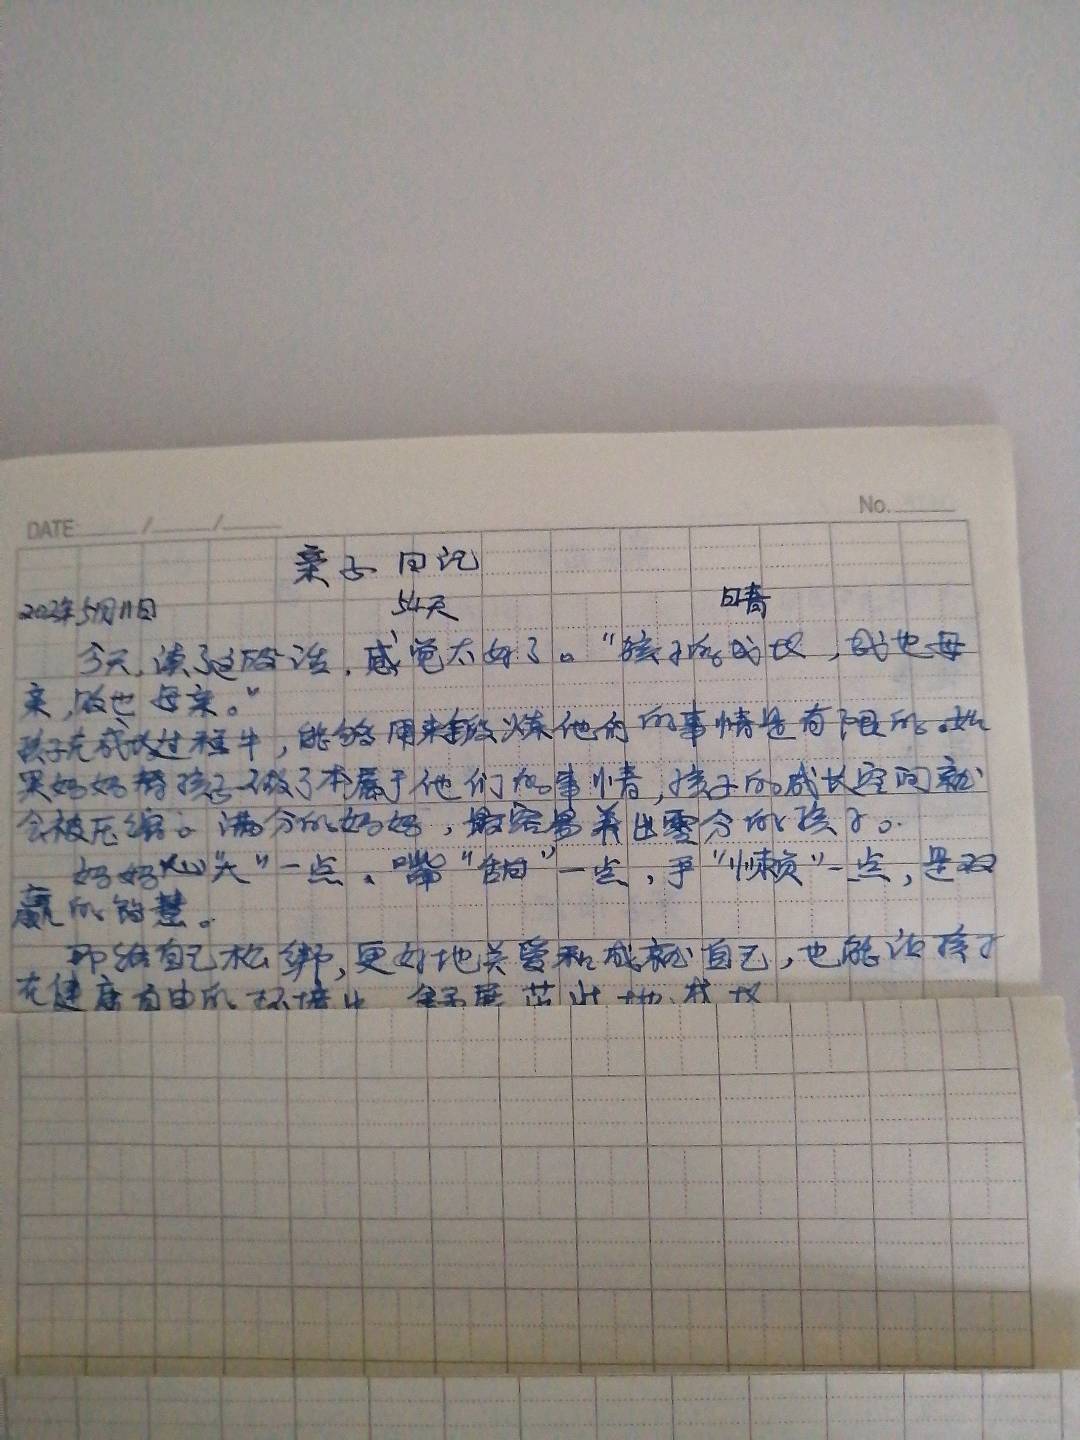 DATE ____/____/____
No.____
亲子日记
2023年5月11日 54天 日晴
今天,读了这段话,感觉太好了。"孩子的成长,成也母
亲,败也母亲。"
孩子在成长过程中,能够用来锻炼他们的事情是有限的。如
果妈妈替孩子做了本属于他们的事情,孩子的成长空间就
会被压缩。满分的妈妈,最容易养出零分的孩子。
妈妈心"大"一点、嘴"甜"一点,手"懒"一点,是双
赢的智慧。
即给自己松绑,更好地关爱和成就自己,也能让孩子
在健康自由的环境中 舒展 茁壮地成长